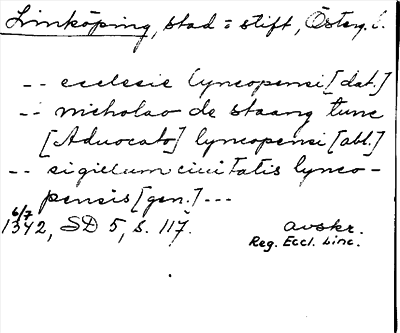 Linköping, stad = stift, Österg. l.
-- ecclesie lyncopensi [dat.]
-- nicholao de staang tunc
[Aduocato] lyncopensi [abl.]
-- sigillum ciuitatis lynco-
pensis [gen.] ---
6/7
1342, SD 5, s. 117. avskr.
Reg. Eccl. Linc.